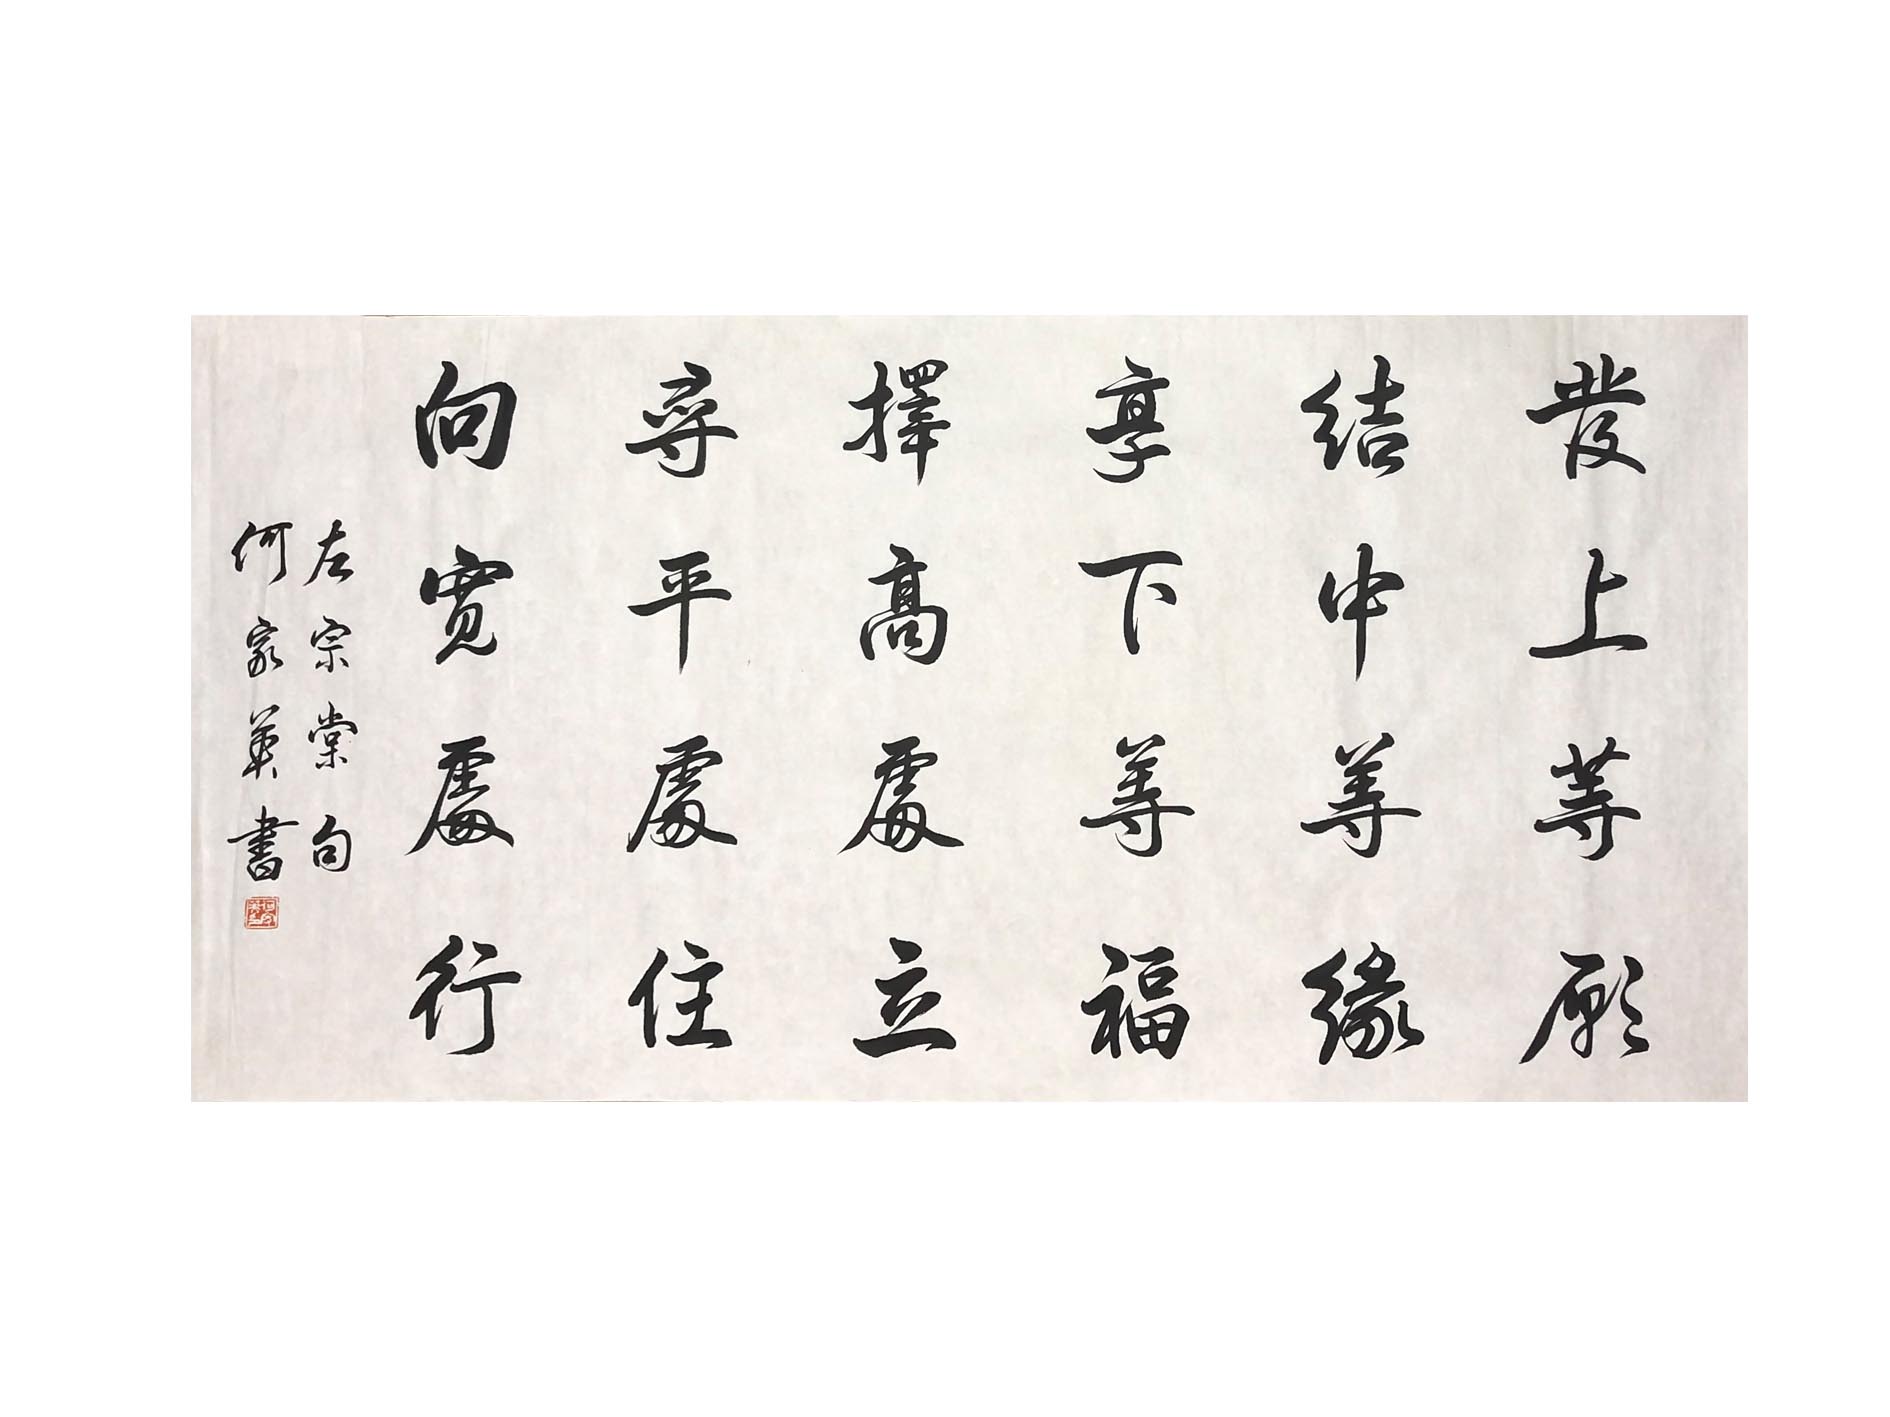 發上等愿
結中等緣
享下等福
擇高處立
尋平處住
向寬處行
左宗棠句
何家英書